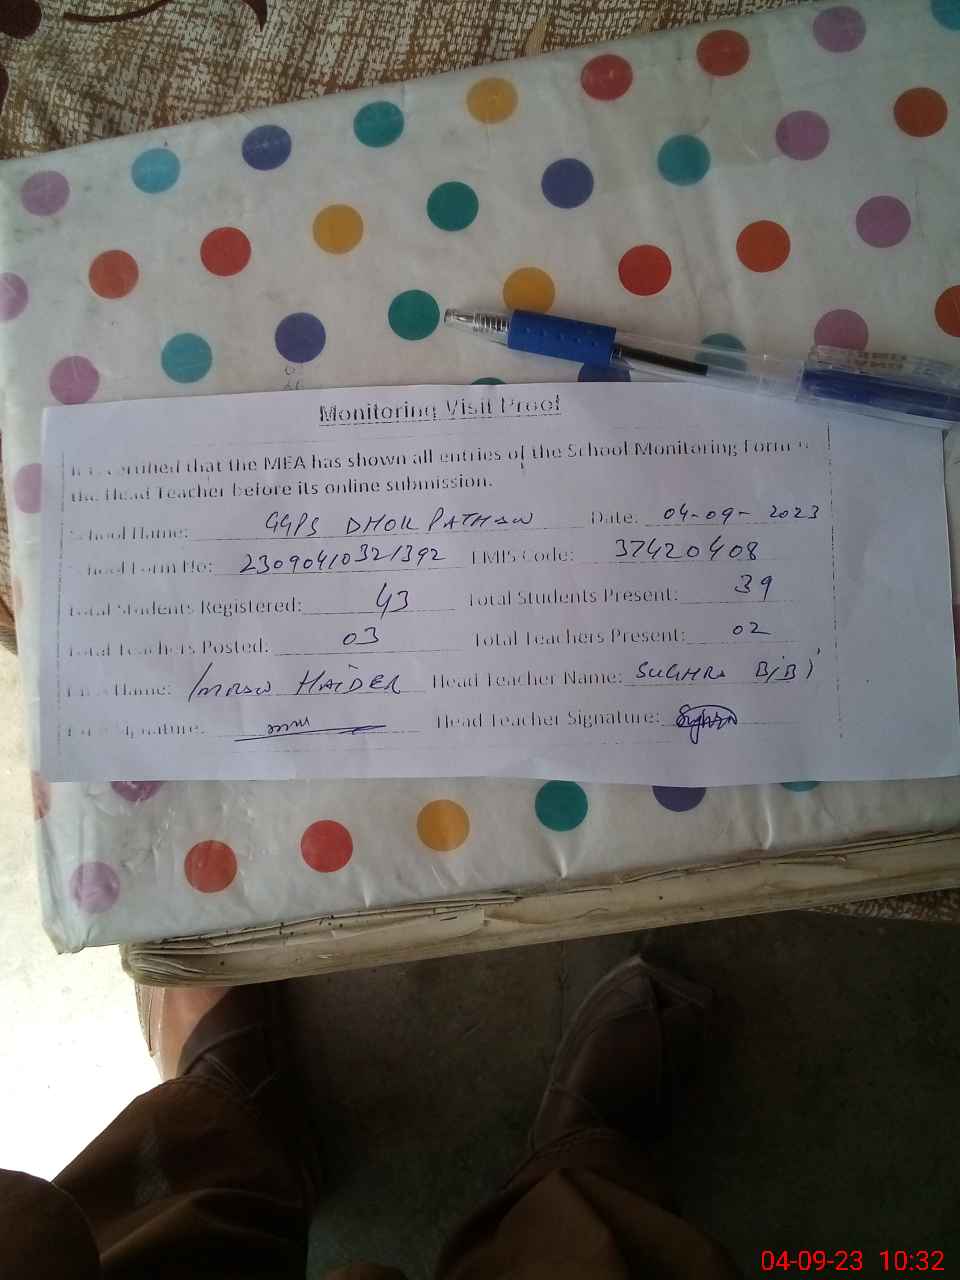 Monitoring Visit Proof
It is certified that the MEA has shown all entries of the School Monitoring Form to
the Head Teacher before its online submission.
School Name: GGPS DHOK PATHAN Date: 04-09-2023
School Form No: 23090410321392 EMIS Code: 37420408
Total Students Registered: 43 Total Students Present: 39
Total Teachers Posted: 03 Total Teachers Present: 02
Name: IMRAN HAIDER Head Teacher Name: SUGHRA BIBI
Signature: Head Teacher Signature:
04-09-23 10:32